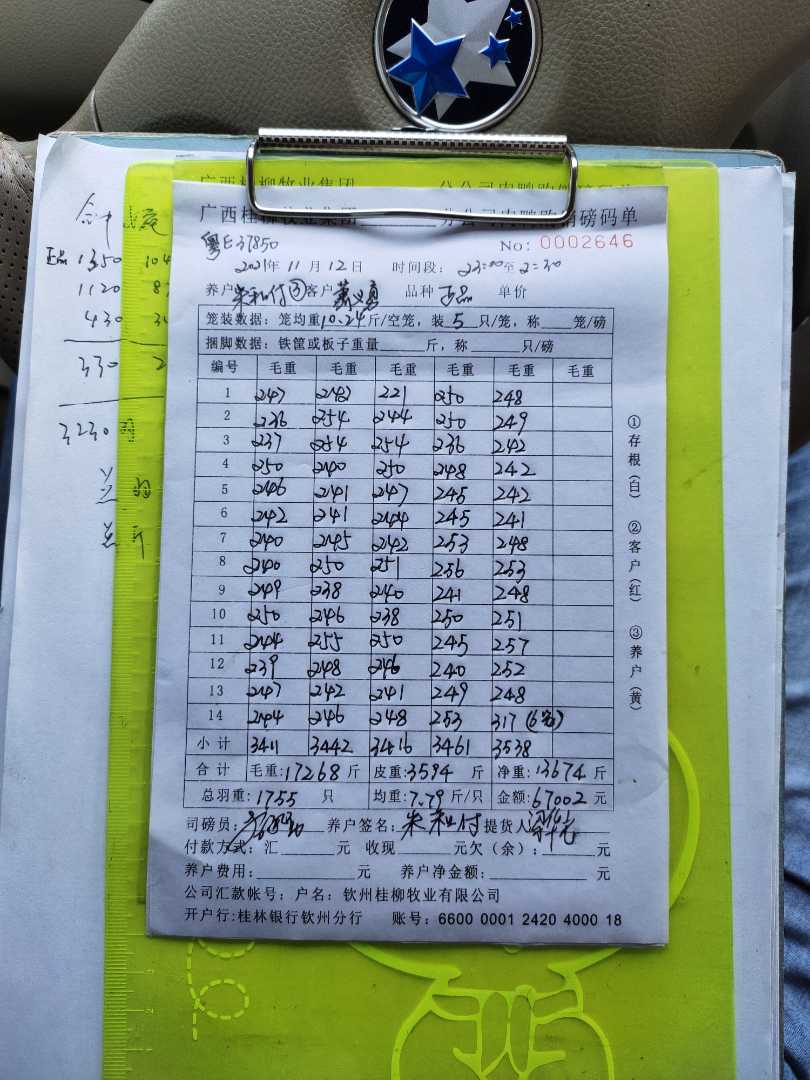 广西桂柳牧业集团 分公司肉鸭购销磅码单
粤E37850
No: 0002646
2021年11月12日 时间段: 23:00至2:30
养户 朱和付③ 客户 品种 正品 单价
笼装数据: 笼均重10.24斤/空笼, 装5只/笼, 称 笼/磅
捆脚数据: 铁筐或板子重量 斤, 称 只/磅
编号 毛重 毛重 毛重 毛重 毛重 毛重
1 247 242 221 250 248
2 236 254 244 250 249
3 237 254 254 236 242
4 250 240 250 248 242
5 246 241 247 245 242
6 242 241 244 245 241
7 240 245 242 253 248
8 240 250 251 256 253
9 249 238 240 241 248
10 250 246 238 250 251
11 244 255 250 245 257
12 239 248 246 240 252
13 247 242 241 249 248
14 244 246 248 253 317 (6笼)
小计 3411 3442 3416 3461 3538
合计 毛重:17268斤 皮重:3594 斤 净重:13674斤
总羽重:1755 只 均重:7.79斤/只 金额:67002元
司磅员: 养户签名: 朱和付 提货人
付款方式: 汇 元 收现 元欠(余): 元
养户费用: 元 养户净金额: 元
公司汇款帐号: 户名: 钦州桂柳牧业有限公司
开户行:桂林银行钦州分行 账号: 6600 0001 2420 4000 18
①存根(白) ②客户(红) ③养户(黄)
正品 1350
1120
430
330
3230